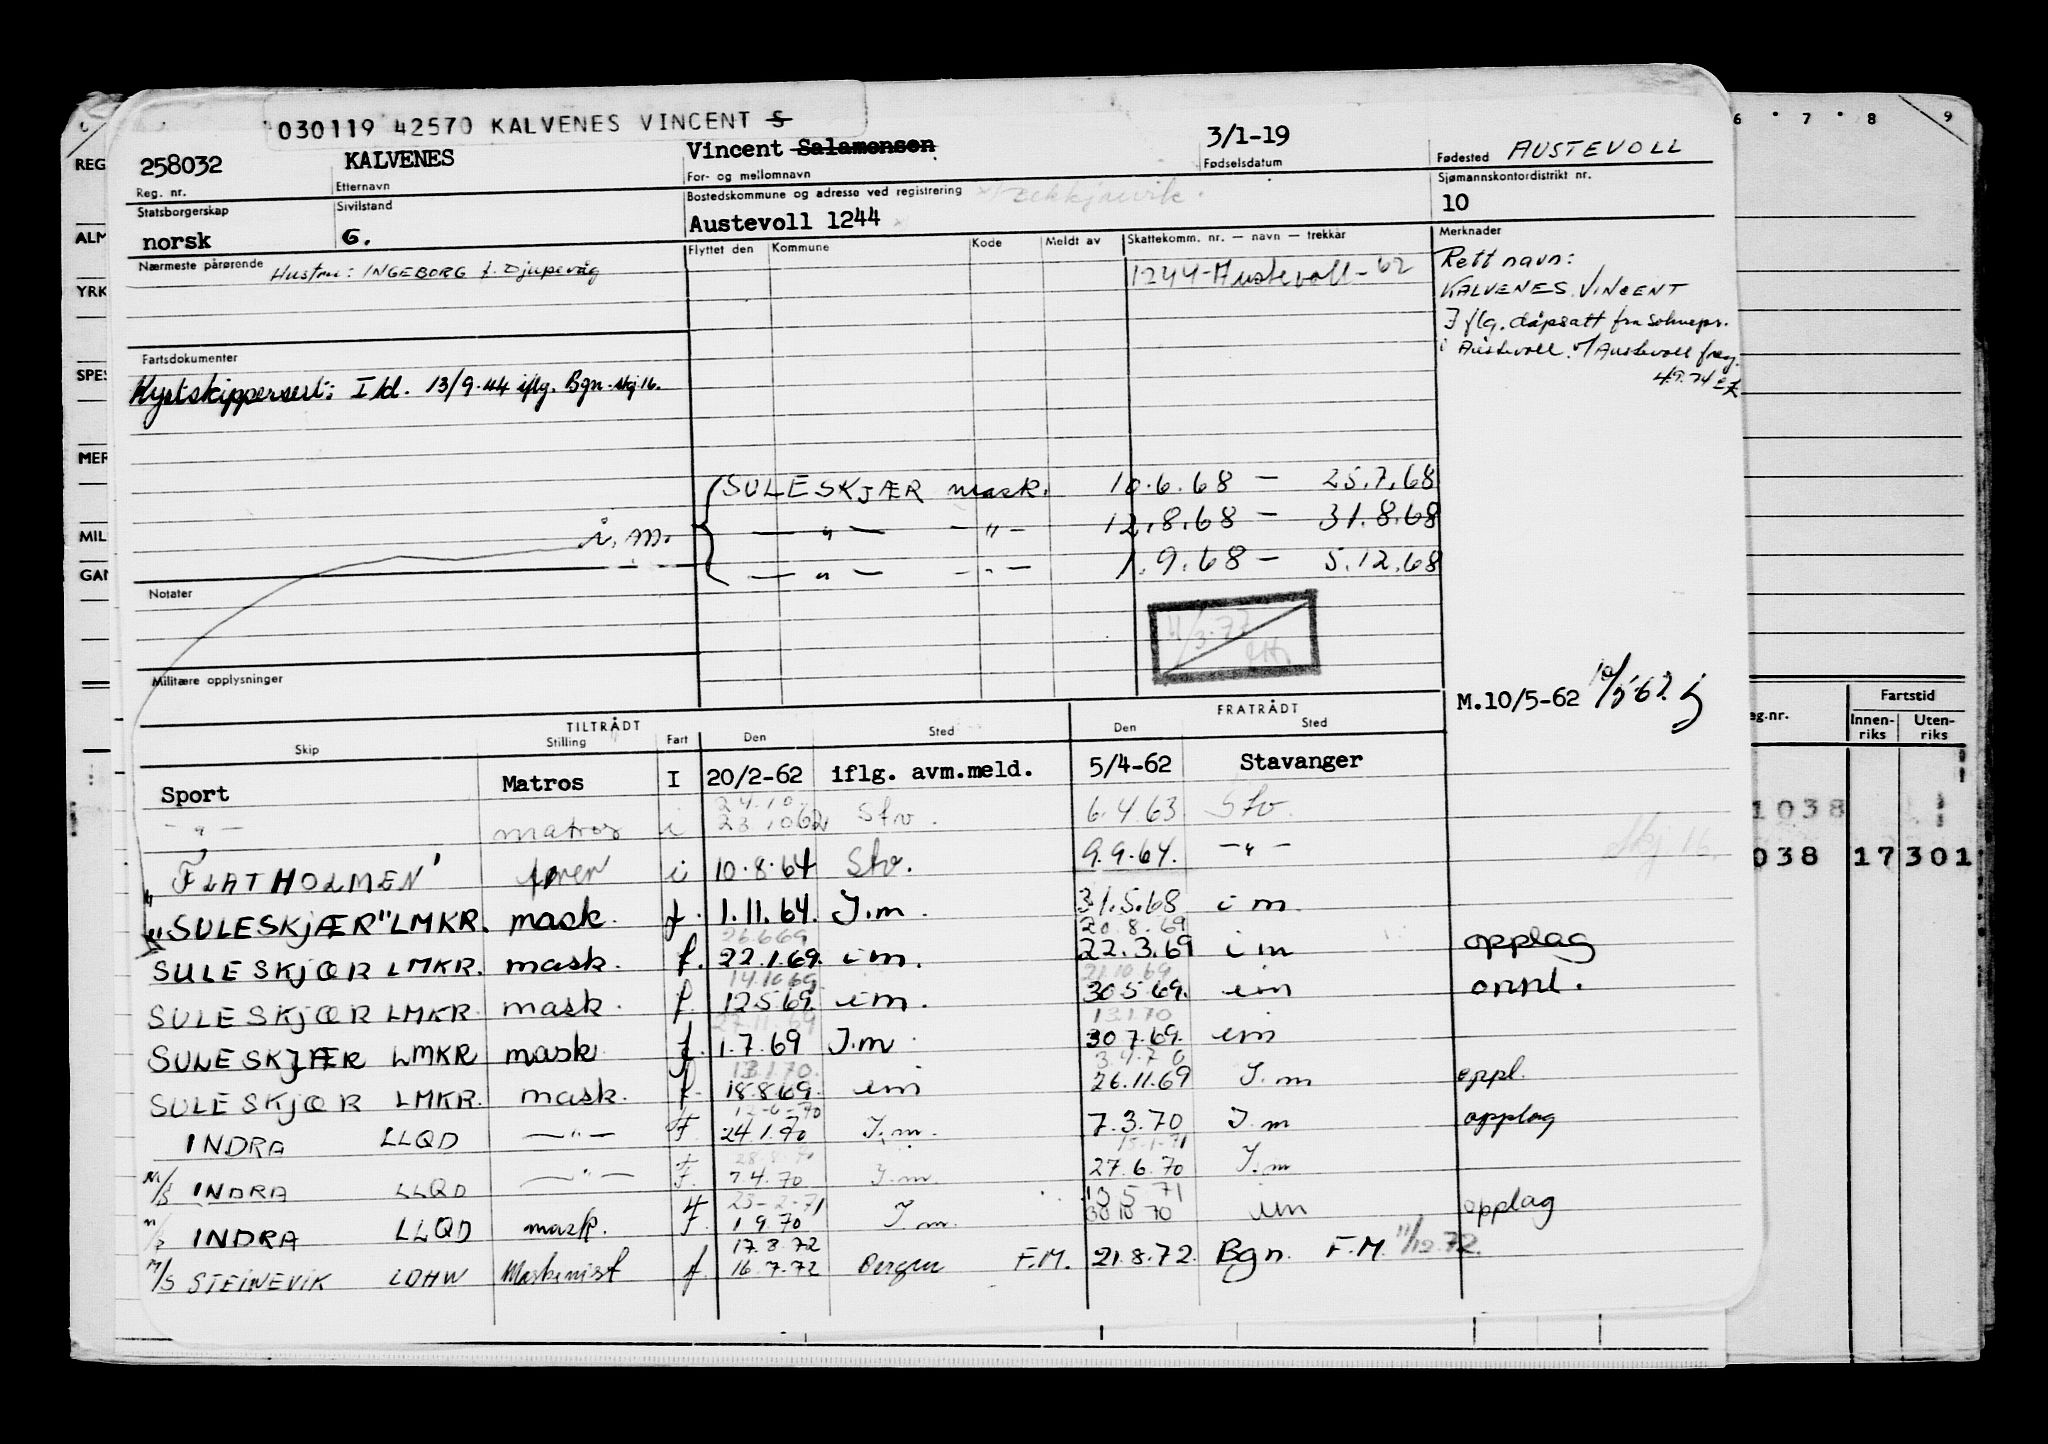 030119 42570 KALVENES VINCENT S
258032 KALVENES Vincent Salamonsen 3/1-19 Fødested AUSTEVOLL
Reg. nr. Etternavn For- og mellomnavn Fødselsdatum Sjømannskontordistrikt nr.
Statsborgerskap Sivilstand Bostedskommune og adresse ved registrering
norsk G. Austevoll 1244 10
Nærmeste pårørende Hustru: INGEBORG f. Djupevåg
Flyttet den Kommune Kode Meldt av Skattekomm. nr. — navn — trekkår Merknader
1244-Austevoll-62
Rett navn:
KALVENES, VINCENT
I flg. dåpsatt fra Soknepr.
i Austevoll
Fartsdokumenter
Kystskippersert: I/d. 13/9-44 iflg. Bgn. skj. 16.
i.m. SULESKJÆR mask. 10.6.68 — 25.7.68
— " — — " — 12.8.68 — 31.8.68
— " — — " — 1.9.68 — 5.12.68
Notater
Militære opplysninger
M.10/5-62
TILTRÅDT FRATRÅDT
Skip Stilling Fart Den Sted Den Sted
Sport Matros I 20/2-62 iflg. avm.meld. 5/4-62 Stavanger
24.10
— " — matros i 23.10 62 Stv. 6.4.63 Stv.
"FLATHOLMEN" i 10.8.64 Stv. 9.9.64. — " —
"SULESKJÆR" LMKR. mask. f. 1.11.64. I.m. 31.5.68 i m.
26.6.69 20.8.69
SULESKJÆR LMKR. mask. f. 22.1.69. i m. 22.3.69 i m opplag
14.10.69. 21.10.69
SULESKJÆR LMKR. mask. f. 12.5.69. i m. 30.5.69. i m oppl.
27.11.69 13.1.70
SULESKJÆR LMKR mask f. 1.7.69 I.m 30.7.69. i m
13.1.70. 3.4.70
SULESKJÆR LMKR. mask. f. 18.8.69. i m 26.11.69 I.m oppl.
12-6-70
INDRA LLQD — " — F. 24.1.70 I.m. 7.3.70 I.m opplag
28.8.70 15.1.71
M/S INDRA LLQD — " — F. 7.4.70 I.m. 27.6.70 I.m
23-2-71 13.5.71
M/S INDRA LLQD mask. F. 1.9.70 I.m. 30.10.70 i m opplag
17.8.72
M/S STEINEVIK LDHW Maskinist f. 16.7.72 Bergen F.M. 21.8.72. Bgn. F.M. 11/12.72.
REG
ALM
YRK
SPES
MER
MIL
GAN
6 7 8 9
Fartstid
Innen-riks Uten-riks
1038
038 17 301